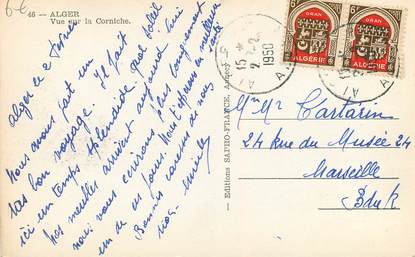 6-€
46 - ALGER
Vue sur la Corniche.
Alger le 2 Février
Nous avons fait un
très bon voyage. Il fait
ici un temps splendide. Quel soleil
Nos meubles arrivent aujourd'hui
nous vous écrirons plus longuement
un de ces jours.
Bonnes caresses de nous
tous.
- Editions SAPHO-FRANCE, Annecy -
ALGER
15 *
2 -2
1950
ORAN
6F
ALGÉRIE
ORAN
6F
ALGÉRIE
Mr Mme Tartarin
24 Rue du Musée 24
Marseille
B du R